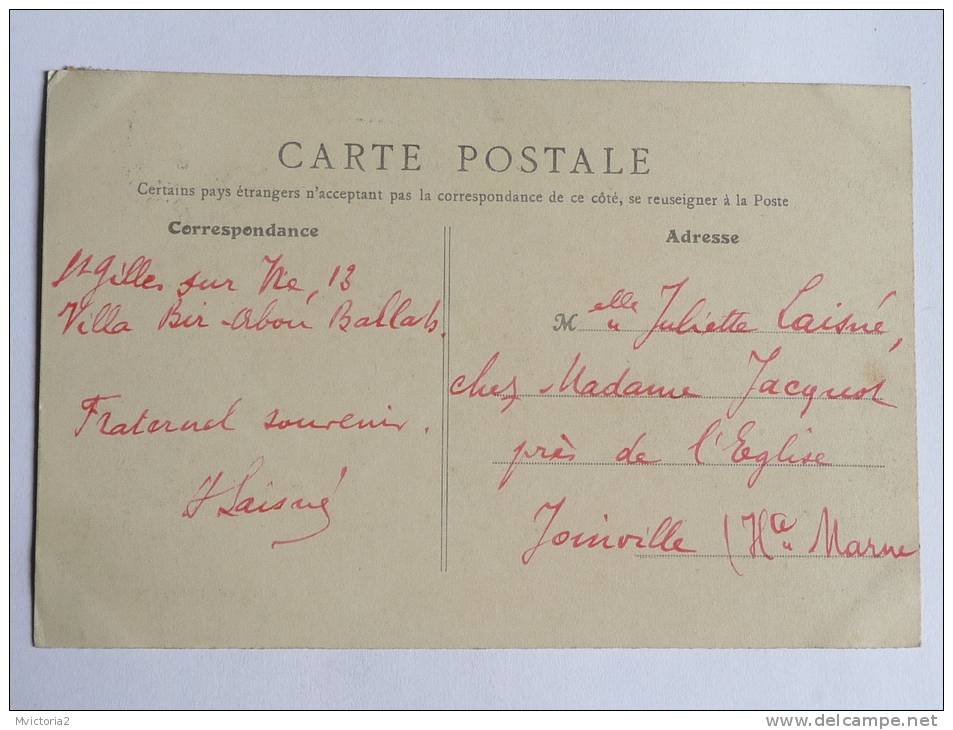 CARTE POSTALE
Certains pays étrangers n'acceptant pas la correspondance de ce côté, se reuseigner à la Poste
Correspondance
St Gilles sur Vie, 13
Villa Bir-Abou Ballah.
Fraternel souvenir.
Laisné
Adresse
Melle Juliette Laisné,
chez Madame Jacquot
près de l'Eglise
Joinville (Hte Marne
Mvictoria2
www.delcampe.net